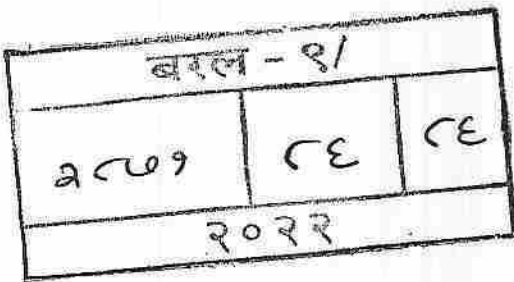 बरल - ९/
२८७१ ८६ ८६
२०२२